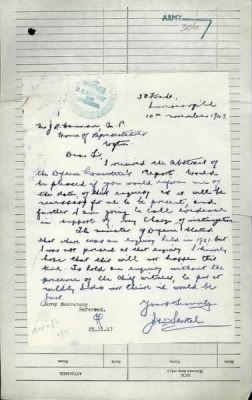 ARMY
306/
10th November 1947
Mr J R Hanan, M. P.
House of Representatives
Wgtn
Dear Sir,
I received the Abstract of
the Defence Committee's Report. Would
be pleased if you would inform me on
the date of this enquiry as it will be
necessary for me to be present, and
further I am going to call evidence
in support of my charge of victimization
The Minister of Defence stated
that there was an enquiry held in 1921 but
I was not present at that enquiry. I
hope that this will not happen this
time. To hold an enquiry without the
presence of the chief witness, to put it
mildly, I do not think it would be
just.
Army Secretary
Referred.
Yours Sincerely
25.11.47